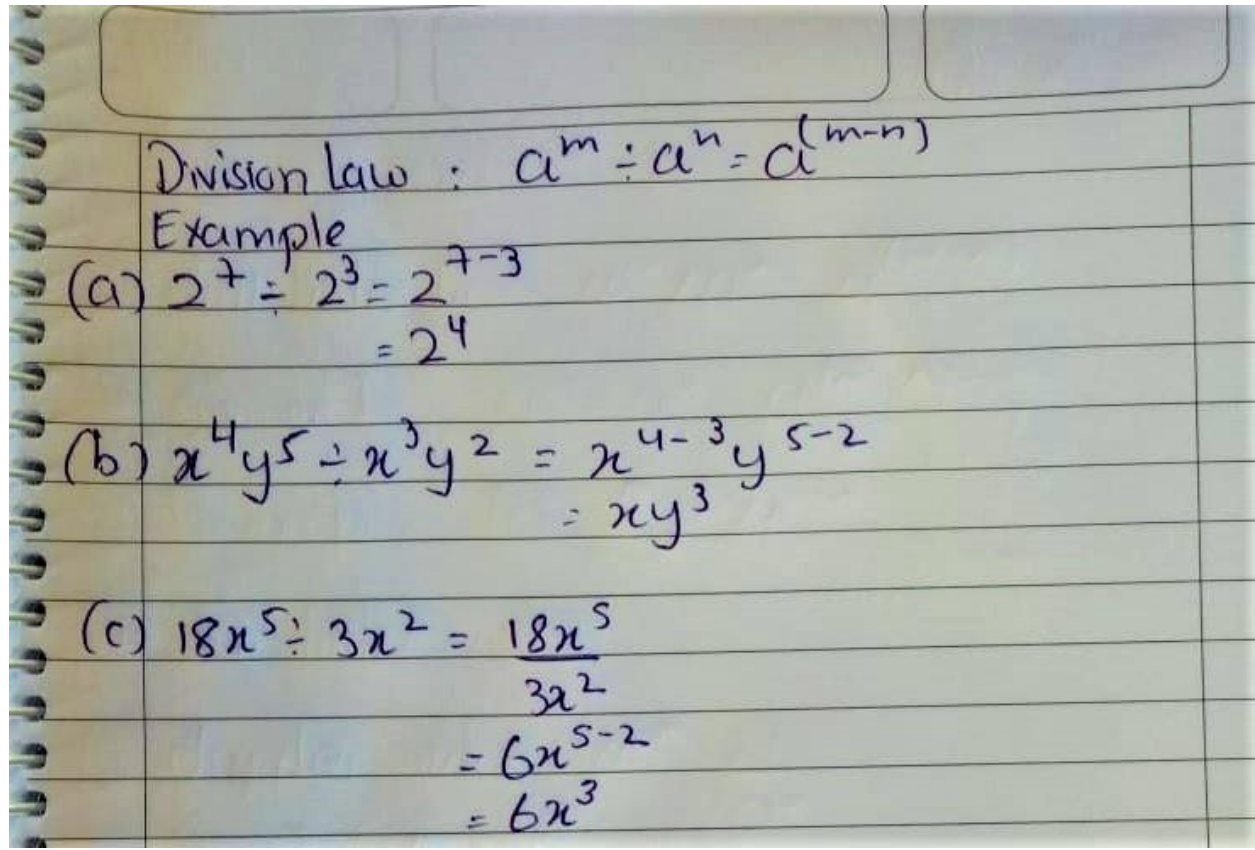 Division Law : a^m ÷ a^n = a^(m-n)
Example
(a) 2^7 ÷ 2^3 = 2^7-3
= 2^4
(b) x^4y^5 ÷ x^3y^2 = x^4-3y^5-2
= xy^3
(c) 18x^5 ÷ 3x^2 = 18x^5
3x^2
= 6x^5-2
= 6x^3